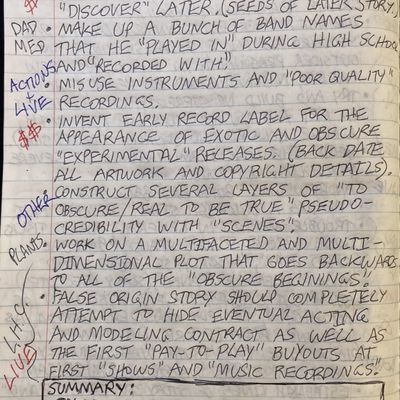 $
"DISCOVER" LATER. (SEEDS OF LATER STORY)
DAD • MAKE UP A BUNCH OF BAND NAMES
MED THAT HE "PLAYED IN" DURING HIGH SCHOOL
AND "RECORDED WITH."
ACTIONS • MISUSE INSTRUMENTS AND "POOR QUALITY"
LIVE RECORDINGS.
$$ • INVENT EARLY RECORD LABEL FOR THE
APPEARANCE OF EXOTIC AND OBSCURE
"EXPERIMENTAL" RELEASES. (BACK DATE
ALL ARTWORK AND COPYRIGHT DETAILS).
OTHER • CONSTRUCT SEVERAL LAYERS OF "TO
OBSCURE/REAL TO BE TRUE" PSEUDO-
CREDIBILITY WITH "SCENES".
PLANTS. • WORK ON A MULTIFACETED AND MULTI-
DIMENSIONAL PLOT THAT GOES BACKWARDS
TO ALL OF THE "OBSCURE BEGININGS".
L.H.C. • FALSE ORIGIN STORY SHOULD COMPLETELY
ATTEMPT TO HIDE EVENTUAL ACTING
AND MODELING CONTRACT AS WELL AS
LIVE THE FIRST "PAY-TO-PLAY" BUYOUTS AT
FIRST "SHOWS" AND "MUSIC RECORDINGS".
SUMMARY: